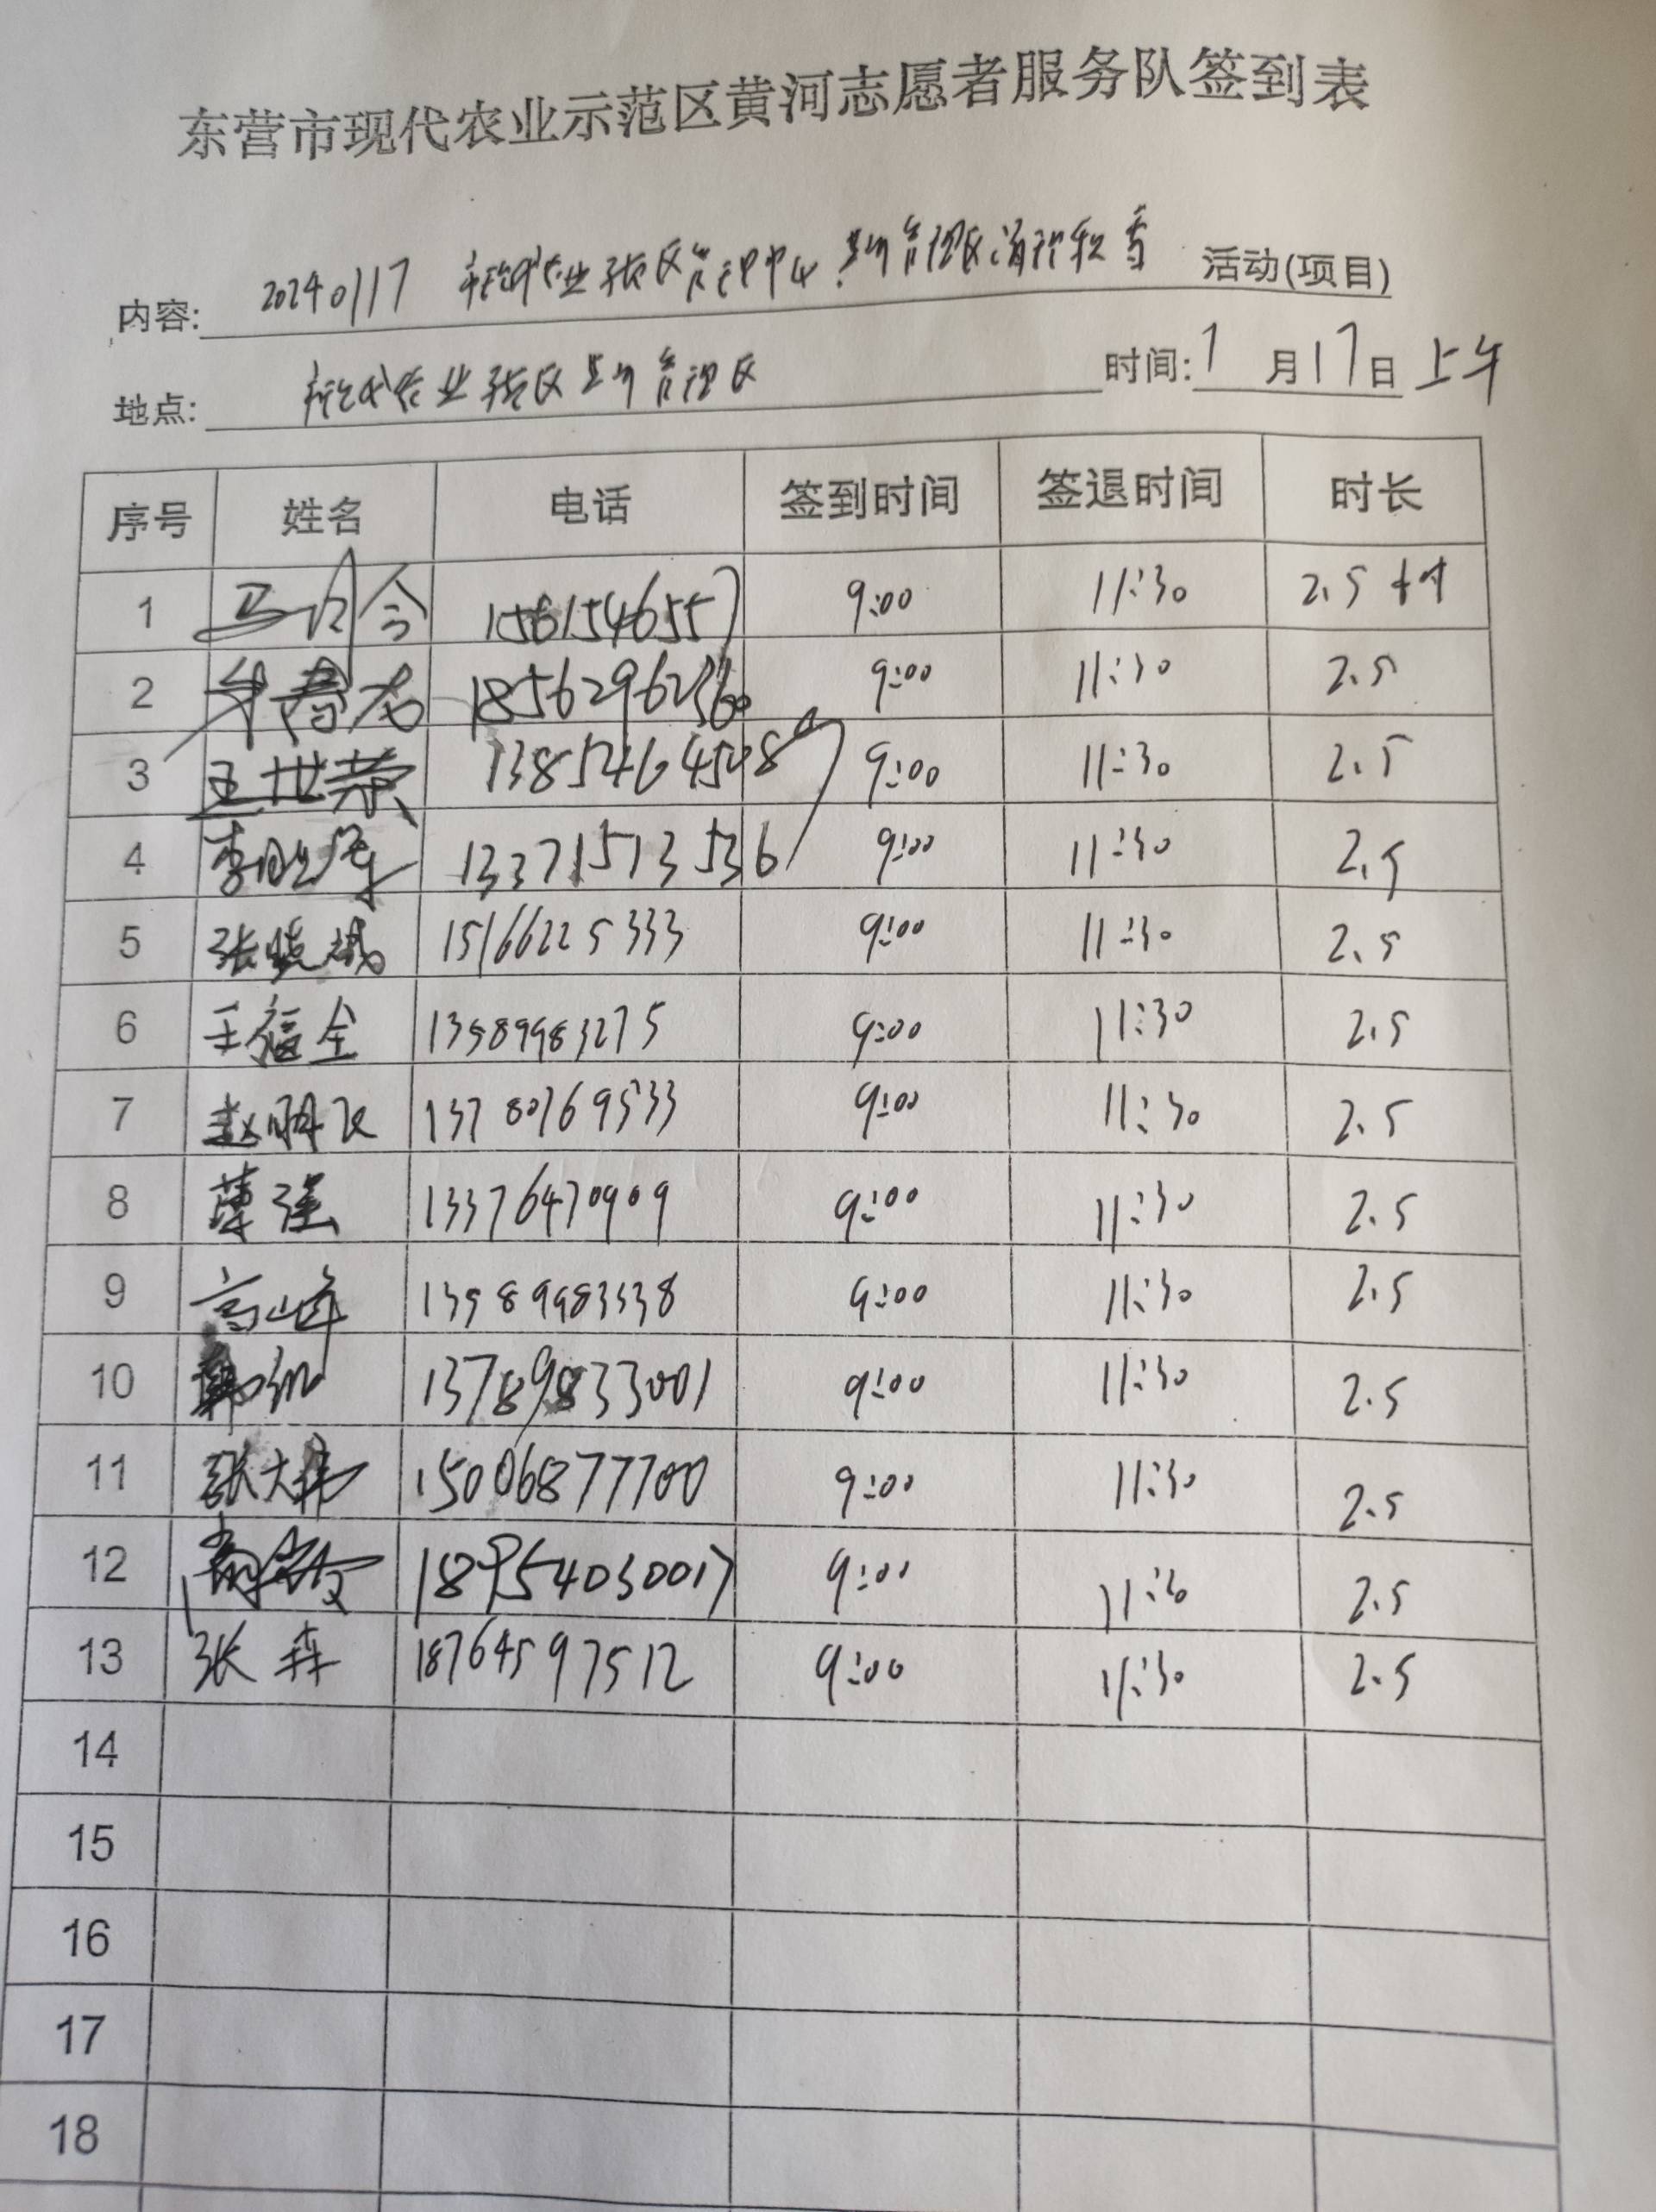 东营市现代农业示范区黄河志愿者服务队签到表
内容: 20240117 现代农业示范区管理中心 管理区清理积雪 活动(项目)
地点: 现代农业示范区 管理区 时间: 1月17日 上午
序号 姓名 电话 签到时间 签退时间 时长
1 15615465577 9:00 11:30 2.5时
2 9:00 11:30 2.5
3 王世荣 9:00 11:30 2.5
4 李 13371513536 9:00 11:30 2.5
5 张 15166225333 9:00 11:30 2.5
6 王福全 13589983275 9:00 11:30 2.5
7 赵明飞 13780769533 9:00 11:30 2.5
8 薄强 13376470909 9:00 11:30 2.5
9 高峰 13589983338 9:00 11:30 2.5
10 13789833001 9:00 11:30 2.5
11 张大伟 15006877700 9:00 11:30 2.5
12 18954030017 9:00 11:30 2.5
13 张森 18764597512 9:00 11:30 2.5
14
15
16
17
18